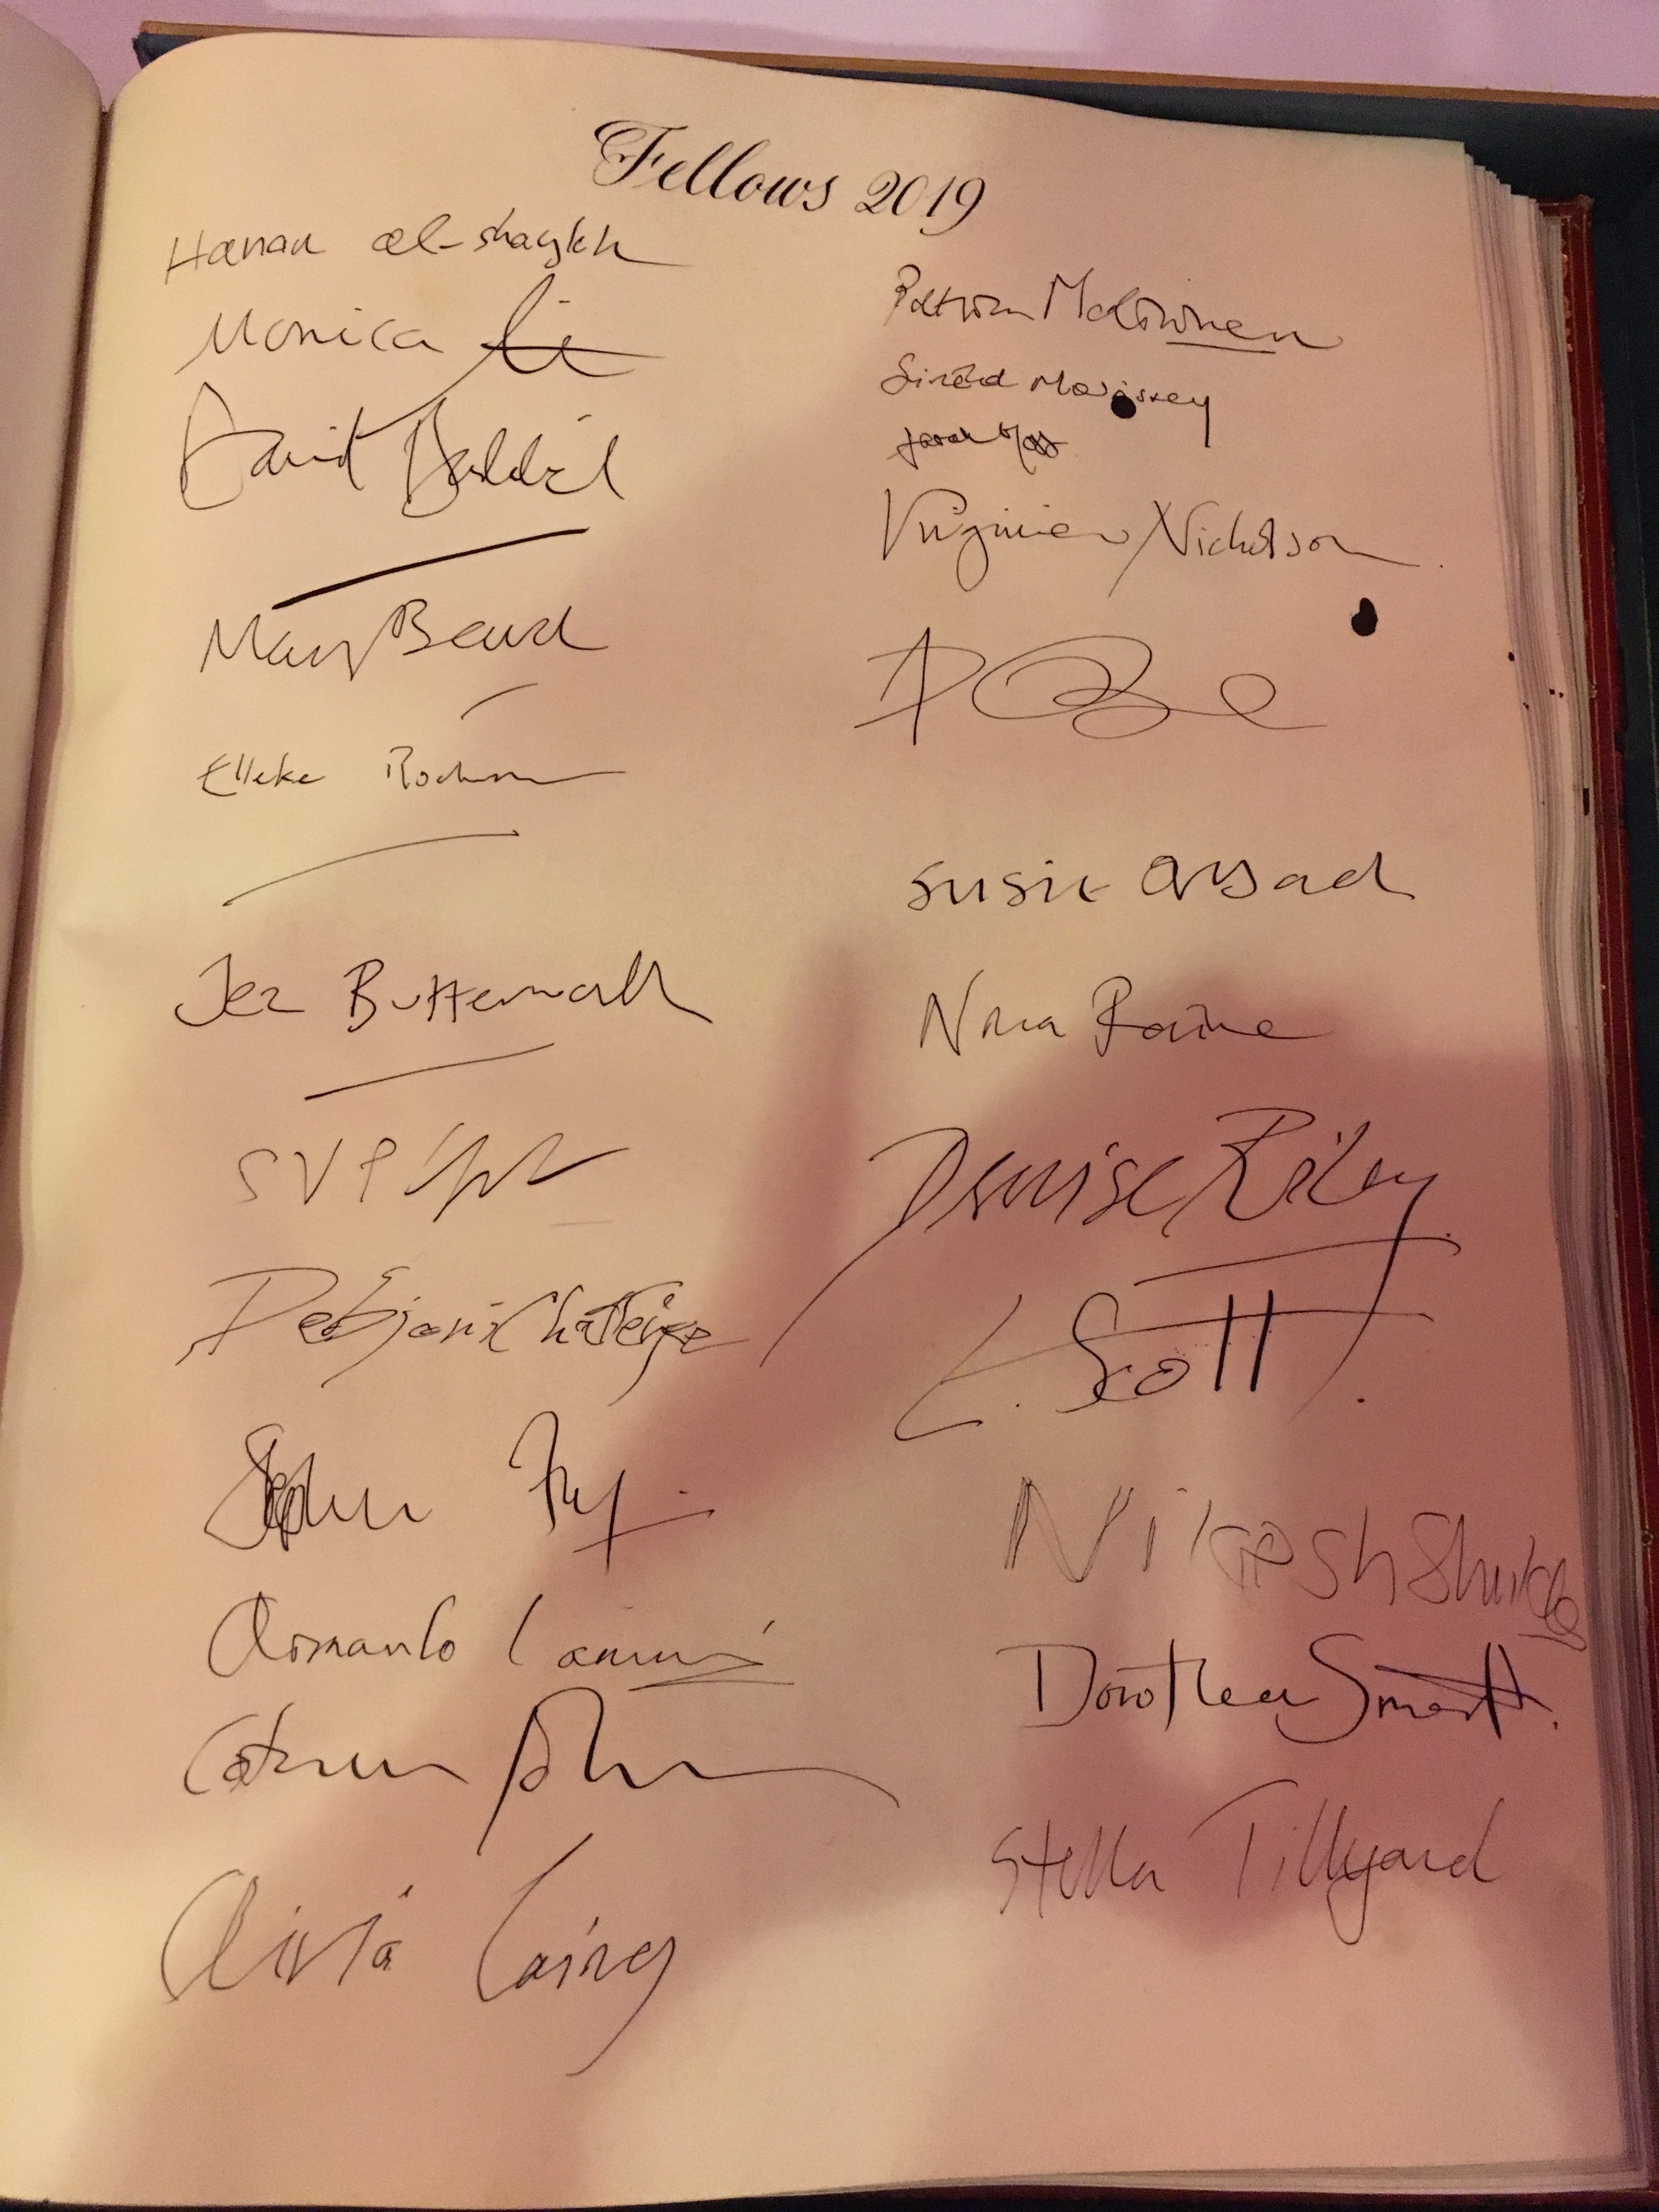 Fellows 2019
Hanan al-Shaykh
Monica Ali
David Baddiel
Mary Beard
Elleke Boehmer
Jez Butterworth
Debjani Chatterjee
Stephen Fry
Armando Iannucci
Olivia Laing
Patricia McKinnon
Sinéad Morrissey
Sarah Moss
Virginia Nicholson
Susie Orbach
Nina Raine
Denise Riley
L. Scott
Nikesh Shukla
Dorothea Smartt.
Stella Tillyard